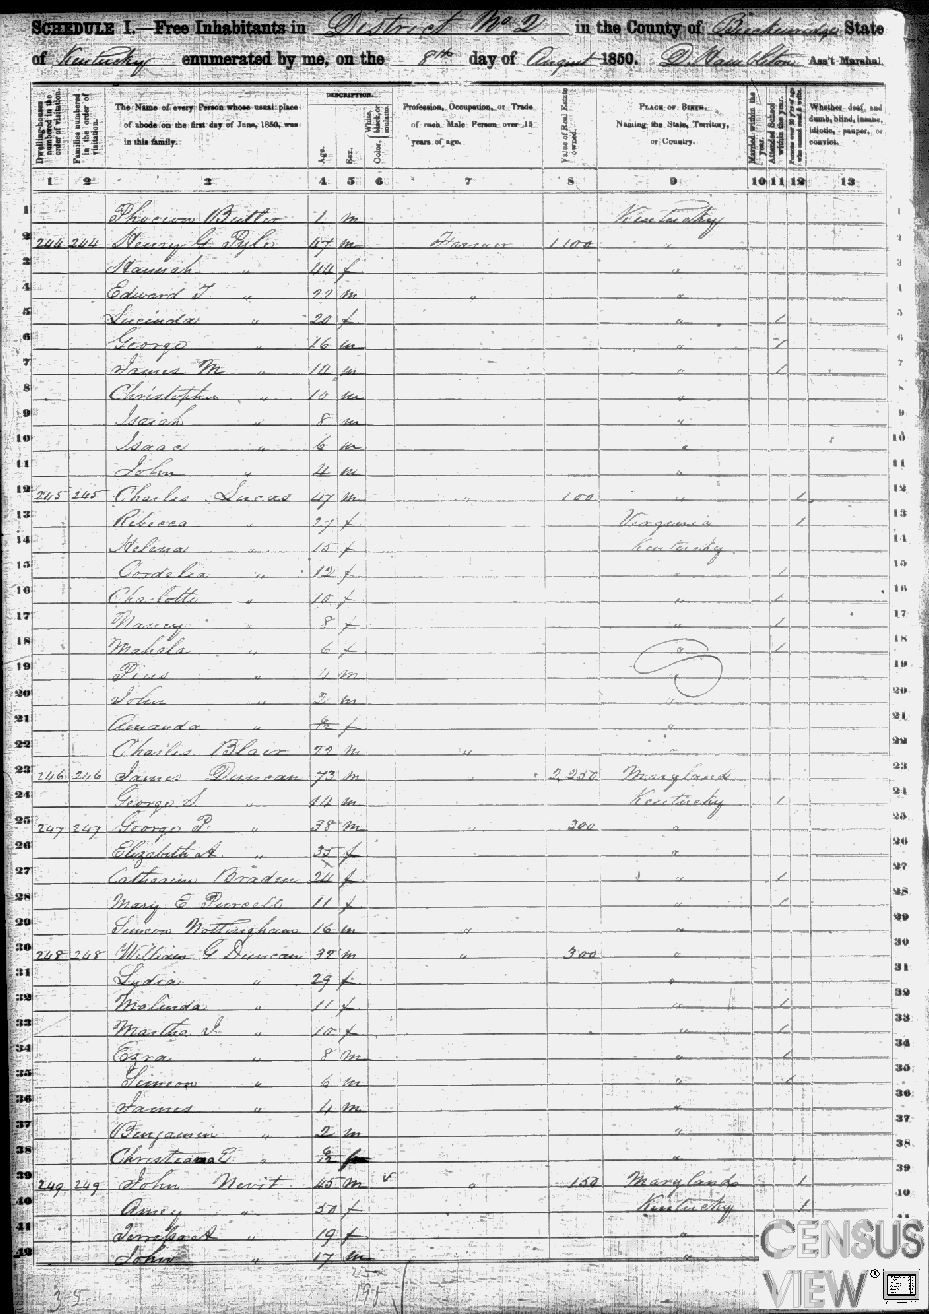 SCHEDULE I.—Free Inhabitants in District No 2 in the County of Breckenridge State
of Kentucky enumerated by me, on the 8th day of August 1850. Ass't Marshal.
Dwelling-houses numbered in the order of visitation.
Families numbered in the order of visitation.
The Name of every Person whose usual place of abode on the first day of June, 1850, was in this family.
DESCRIPTION.
Age.
Sex.
Color, White, black, or mulatto.
Profession, Occupation, or Trade of each Male Person over 15 years of age.
Value of Real Estate owned.
PLACE OF BIRTH. Naming the State, Territory, or Country.
Married within the year.
Attended School within the year.
Persons over 20 y'rs of age who cannot read & write.
Whether deaf, and dumb, blind, insane, idiotic, pauper, or convict.
1 2 3 4 5 6 7 8 9 10 11 12 13
1 Butler 1 m Kentucky 1
2 244 244 Henry G Pyle 47 m Farmer 1100 " 2
3 Hannah " 44 f " 3
4 Edward T " 22 m " " 4
5 Lucinda " 20 f " 1 5
6 George " 16 m " 1 6
7 James M " 10 m " 1 7
8 Christopher " 10 m " 8
9 Isaiah " 8 m " 9
10 Isaac " 6 m " 10
11 John " 4 m " 11
12 245 245 Charles Lucas 47 m " 100 " 1 12
13 Rebecca " 27 f Virginia 1 13
14 Helena " 15 f Kentucky 14
15 Cordelia " 12 f " 1 15
16 Charlotte " 10 f " 1 16
17 Nancy " 8 f " 1 17
18 Mahala " 6 f " 1 18
19 Pius " 4 m 19
20 John " m " 20
21 Amanda " f " 21
22 Charles Blair 22 m " " 22
23 246 246 James Duncan 73 m " 2250 Maryland 23
24 George S " 14 m Kentucky 1 24
25 247 247 George P. " 38 m " 200 " 25
26 Elizabeth A " 35 f " 26
27 Catharine Braden 24 f " 1 27
28 Mary E Purcell 11 f " 1 28
29 Simeon Nottingham 16 m " " 29
30 248 248 William G Duncan 32 m " 300 " 30
31 Lydia " 29 f " 31
32 Malinda " 11 f " 1 32
33 Martha J " 10 f " 1 33
34 Ezra " 8 m " 1 34
35 Simeon " 6 m " 1 35
36 James " 4 m " 36
37 Benjamin " 2 m " 37
38 Christiana E " f " 38
39 249 249 John Nevit 45 m " 150 Maryland 1 39
40 Amey " 50 f Kentucky 1 40
41 " 19 f " 41
42 John " 17 m "
35
CENSUS
VIEW®